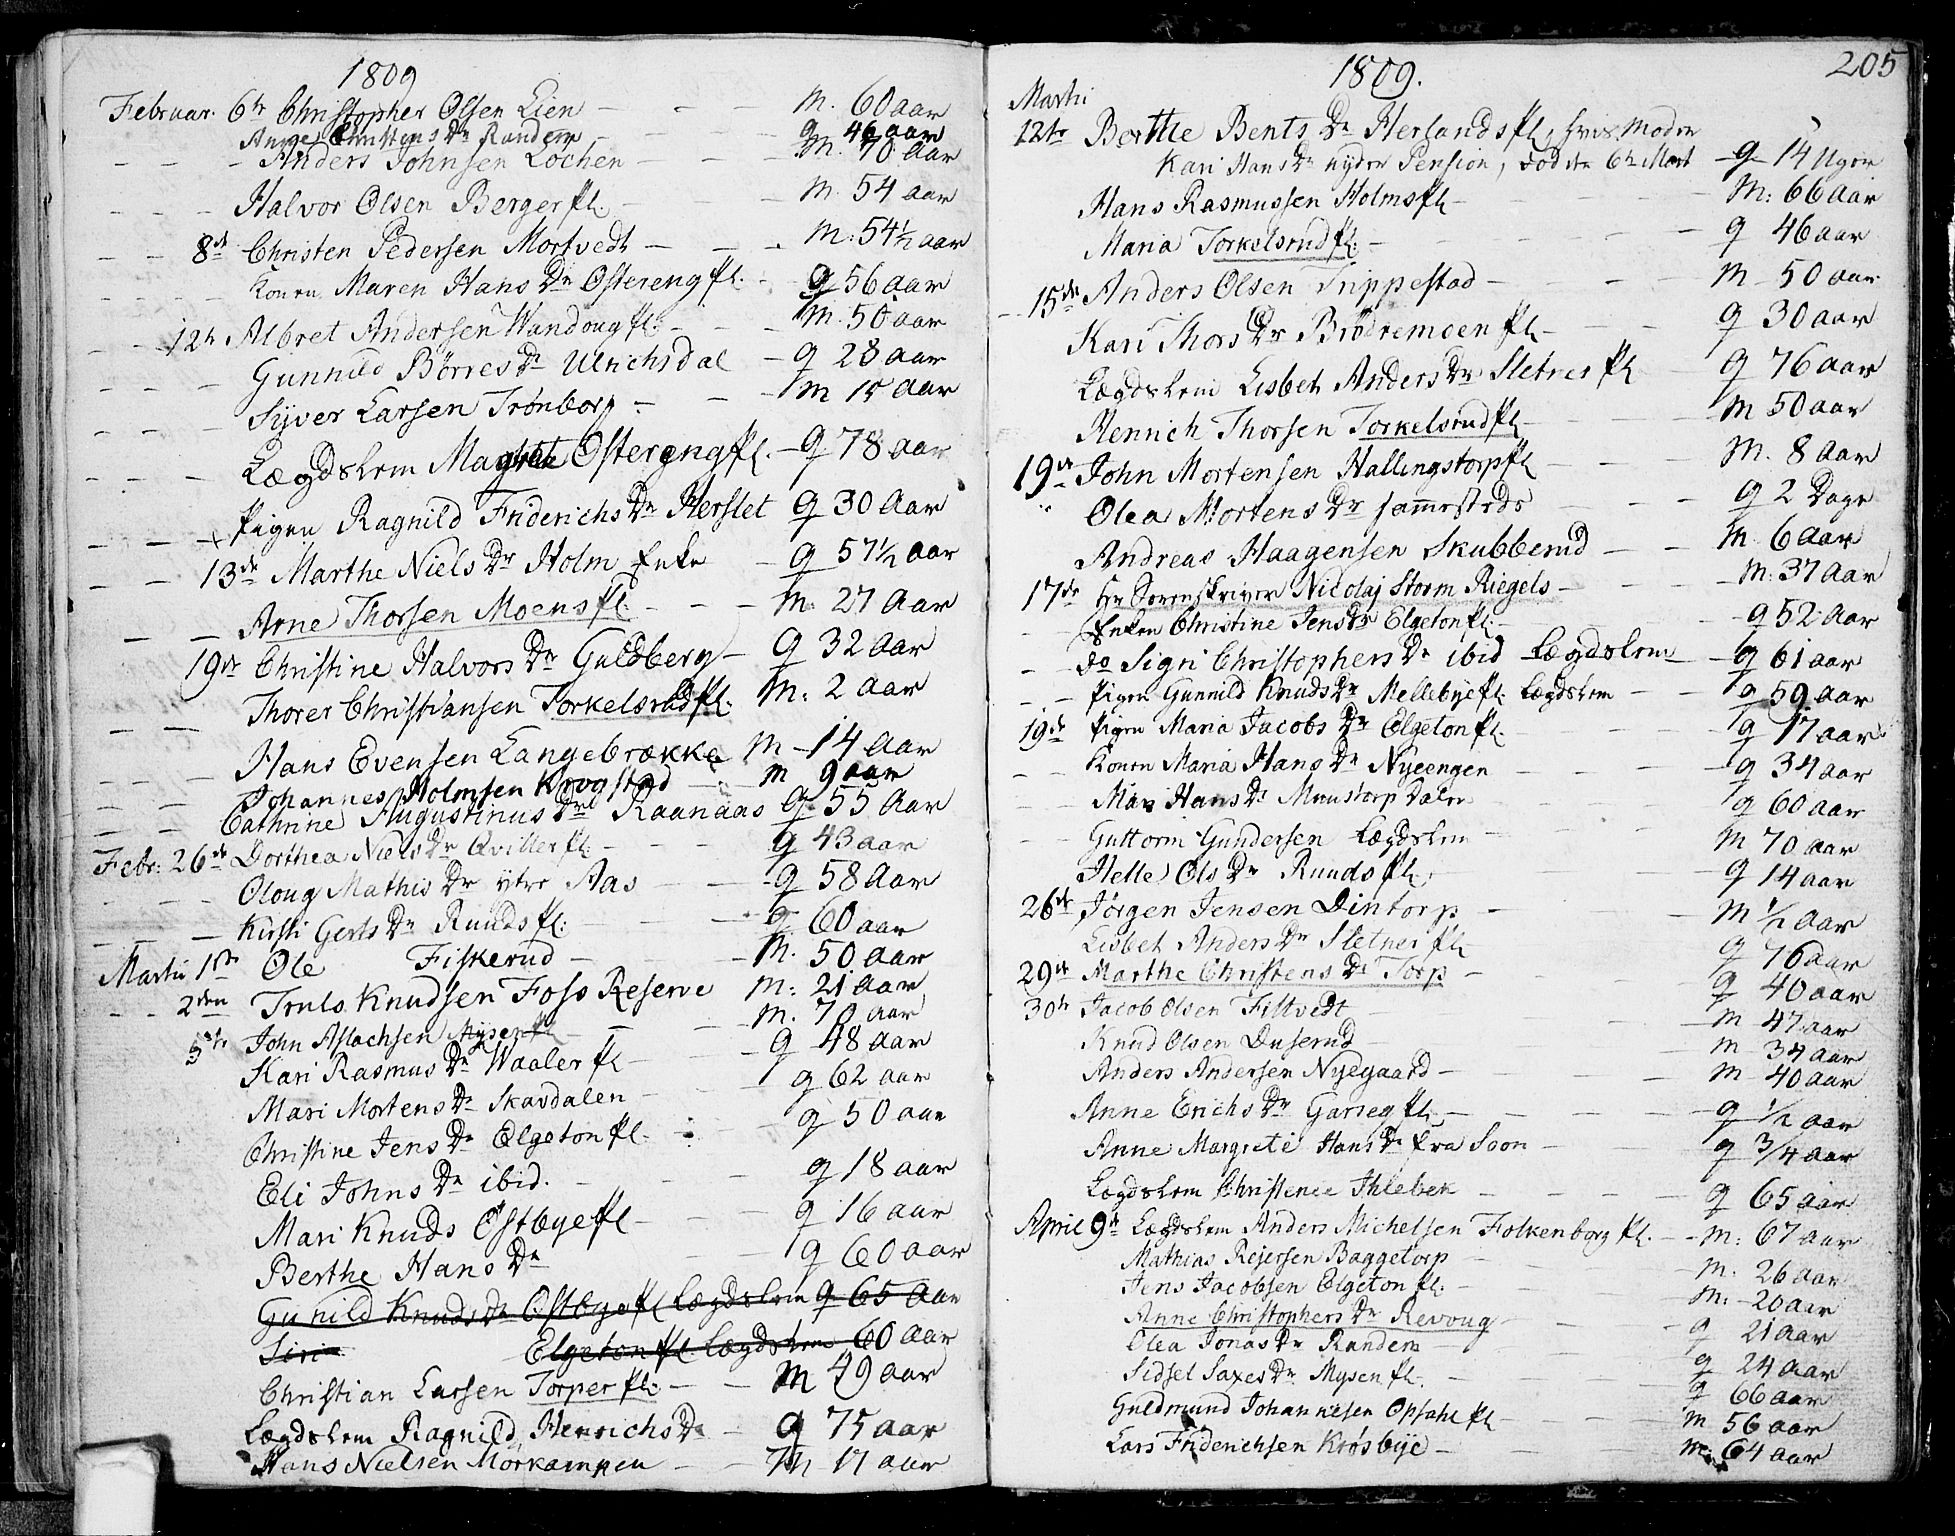 1809
Februar. 6te Christopher Olsen Lien - - - M. 60 aar
Anne Christens Dr Randem - - q 46 aar
- - - Anders Johnsen Lochen - - - M. 70 aar
- - - Halvor Olsen Berger pl. - - M. 54 aar
- - 8de Christen Pedersen Mortvedt - - - M. 54 1/2 aar
- - - Konen Maren Hans Dr Ostereng pl. - q 56 aar
- - 12te Albret Andersen Wandoug pl. - - M. 50 aar
- - - Gunnild Börres Dr Ulrichsdal - q 28 aar
- - - Syver Larsen Trönborg - - - M 15 aar
- - - Lægdslem Magrete Ostereng pl. - q 78 aar
- - - Pigen Ragnild Friderichs Dr Herslet q 30 Aar
- - 13de Marthe Niels Dr Holm Enke - q 57 1/2 aar
- - - Arne Thorsen Moens pl. - - - M. 27 Aar
19de Christine Halvors Dr Guldberg - q 32 Aar
- - Thorer Christiansen Torkelsrud pl. M. 2 Aar
- - - Hans Evensen Langebrække M - 14 Aar
- - Johannes Holmsen Krogstad M 9 aar
- - Cathrine Augustinus Dr Raanaas q 55 Aar
Febr: 26de Dorthea Niels Dr Qviller pl. - - - q 43 aar
- - - Oloug Mathis Dr ytre Aas - - - q 58 Aar
- - - Kirsti Gerts Dr Runds pl. - - q 60 aar
Martii 1ste Ole Fiskerud - - M. 50 aar
- - 2den Truls Knudsen Foss Reserve M. 21 Aar
5te John Aslachsen Mysen pl - - - M. 70 aar
Kari Rasmus Dr Waaler pl - - q 48 aar
Mari Mortens Dr Skavdalen - - q 62 aar
Christine Jens Dr Elgeton pl. - q 50 aar
Eli Johns Dr ibid. - - - q 18 aar
Mari Knuds Ostbye pl - - - q 16 aar
Berthe Hans Dr - - q 60 aar
Gunild Knuds Dr Ostbye pl Lægdslem q 65 Aar
Siri Elgeton pl Lægdslem 60 aar
Christian Larsen Torper pl. - - M 49 aar
Lægdslem Ragnild Henrichs Dr - q 75 aar
Hans Nielsen Mörkampen - - M 17 aar
205
1809.
Martii
12te Berthe Bents Dr Herlands pl, hvis Moder
Kari Hans Dr nyder Pension, död den 6te Mart - q 14 Uger
Hans Rasmussen Holms pl - - M. 66 aar
Maria Torkelsrud pl. - - - - q 46 aar
- 15de Anders Olsen Trippestad - - - M 50 aar
Kari Thors Dr Brödremoen pl - - - q 30 aar
Lægdslem Lisbet Anders Dr Sletner pl - q 76 aar
Henrich Thorsen Torkelsrud pl - - - M 50 aar
19de John Mortensen Hallingstorp pl - - - M. 8 aar
" Olea Mortens Dr sammesteds - - q 2 Dage
Andreas Haagensen Skubberud - - M. 6 aar
17de Hr Sorenskriver Nicolaj Storm Riegels - - - M. 37 aar
- - Enken Christine Jens Dr Elgeton pl. - - - q 52 aar
- - do Sigri Christophers Dr ibid Lægdslem - q 61 aar
- - Pigen Gunnild Knuds Dr Mellebye pl. Lægdslem - - q 59 aar
19de Pigen Maria Jacobs Dr Elgeton pl. - - - q 17 aar
- - Konen Maria Hans Dr Nyeengen - - - q 34 aar
- - Mari Hans Dr Muustorp Dalen q 60 aar
- - Guttorm Gundersen Lægdslem - - - M 70 aar
- - Helle Ols Dr Runds pl. - - - q 14 aar
26de Jörgen Jensen Dintorp - - - M 1/2 aar
Lisbet Anders Dr Sletner pl - - q 76 aar
29de Marthe Christens Dr Torp - - - q 40 aar
30te Jacob Olsen Filtvedt - - - M 47 aar
Knud Olsen Duserud - - - M 34 aar
Anders Andersen Nyegaard - - - M 40 aar
Anne Erichs Dr Garseg pl. - - - q 1/2 aar
Anne Margrete Hans Dr fra Soon - - - q 3/4 aar
Lægdslem Christence Ihlebek - - - q 65 aar
April 9de Lægdslem Anders Michelsen Folkenborg pl. - - M. 67 aar
Mathias Rejersen Baggetorp - - M. 26 aar
Jens Jacobsen Elgeton pl. - - M. 20 aar
Anne Christophers Dr Revoug - - - q 21 aar
Olea Jonas Dr Randem - - q 24 aar
Sidsel Saxes Dr Mysen pl. - - q 66 aar
Guldmund Johannesen Opsahl pl - - M 56 aar
Lars Friderichsen Krösbye - - M. 64 aar